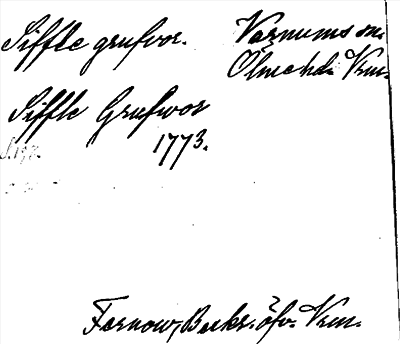 Siffle grufvor. Varnums sn.
Ölme hd. Vrm.
Siffle Grufvor
1773.
S. 197.
Fernow, Beskr. öfv. Vrm.